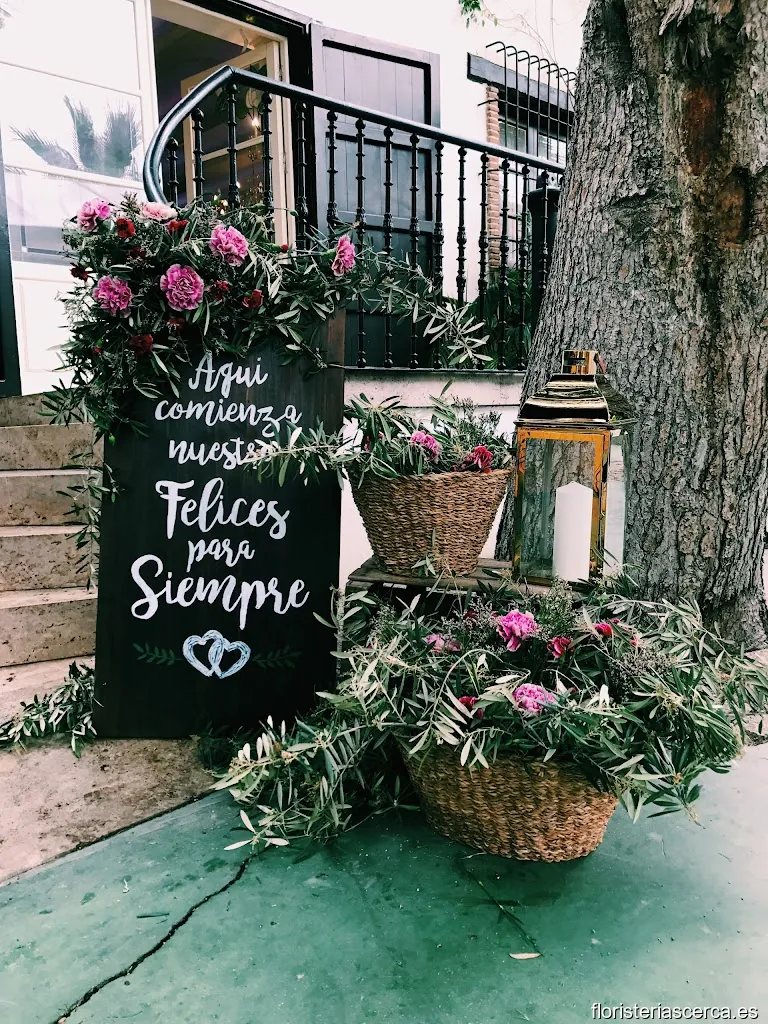 Aqui
comienza
nuestro
Felices
para
Siempre
floristeriascerca.es